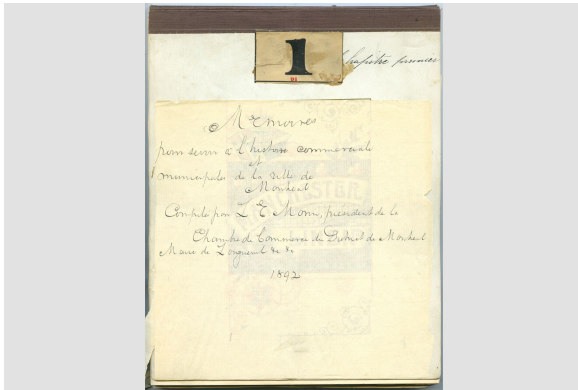 1
Chapitre premier
Memoires
pour servir à l'histoire commerciale
et
municipales de la ville de
Montreal
Compilé par L E Morin, président de la
Chambre de Commerce du District de Montreal
Maire de Longueuil &c &c
1892